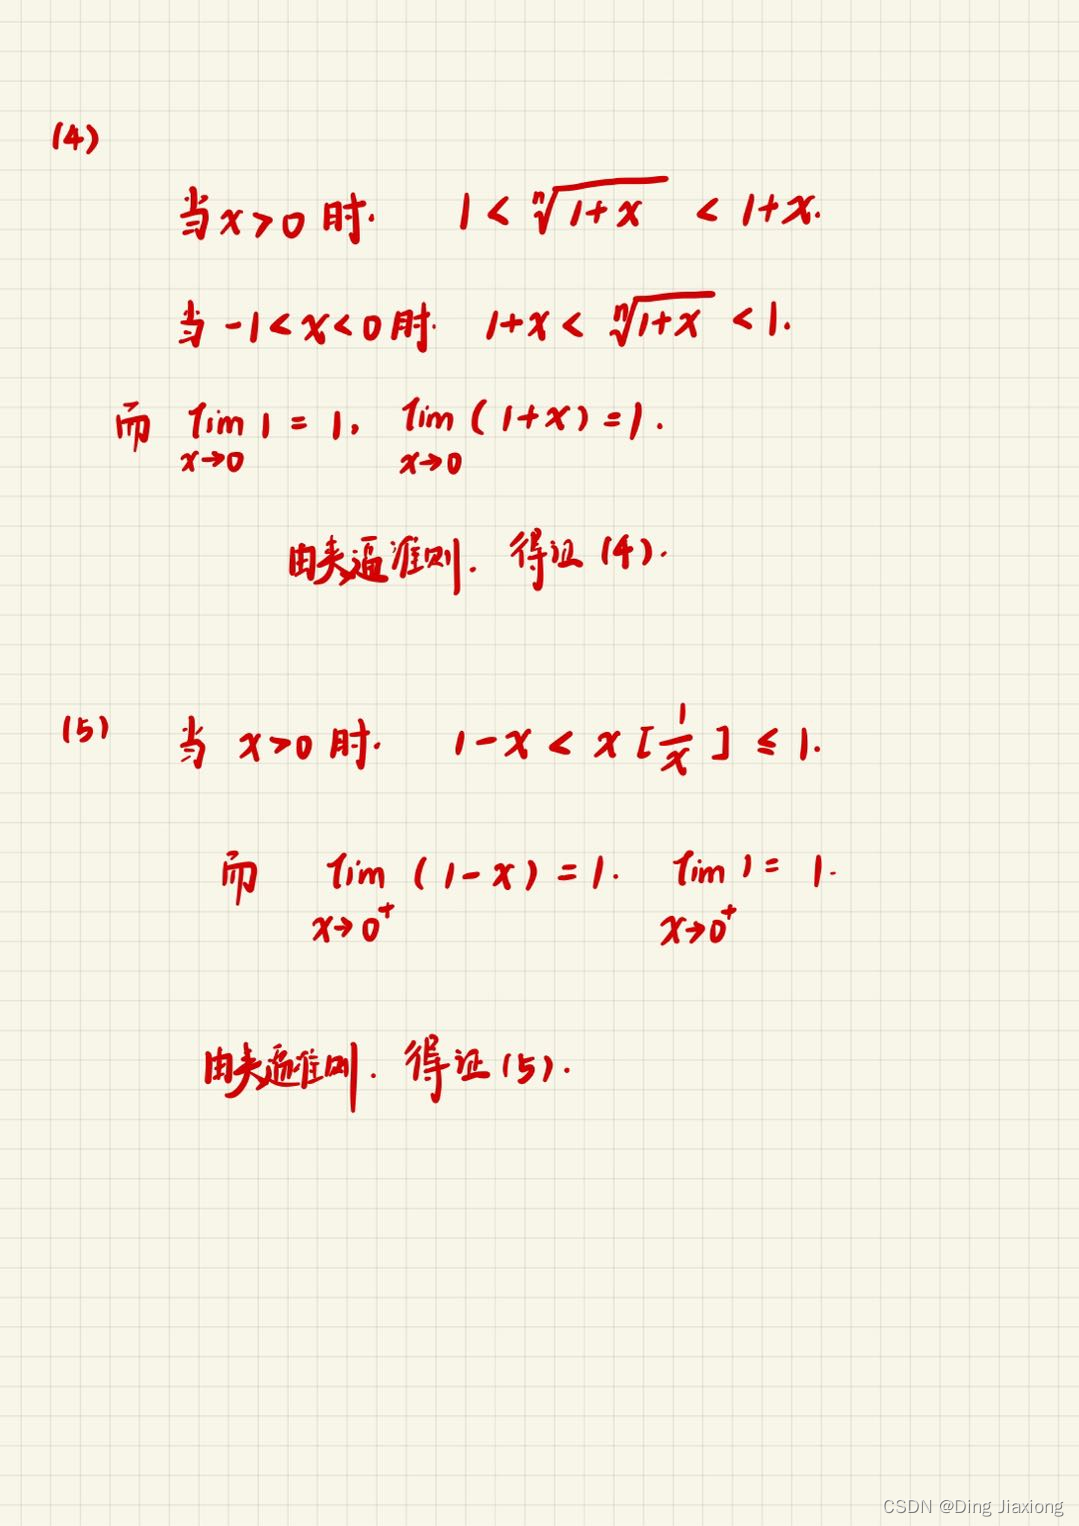 (4)
当 x>0 时. 1 < ⁿ√(1+x) < 1+x.
当 -1<x<0 时. 1+x < ⁿ√(1+x) < 1.
而 lim 1 = 1, lim (1+x) = 1.
x→0 x→0
由夹逼准则. 得证 (4).
(5) 当 x>0 时. 1-x < x [1/x] ≤ 1.
而 lim (1-x) = 1. lim 1 = 1.
x→0⁺ x→0⁺
由夹逼准则. 得证 (5).
CSDN @Ding Jiaxiong